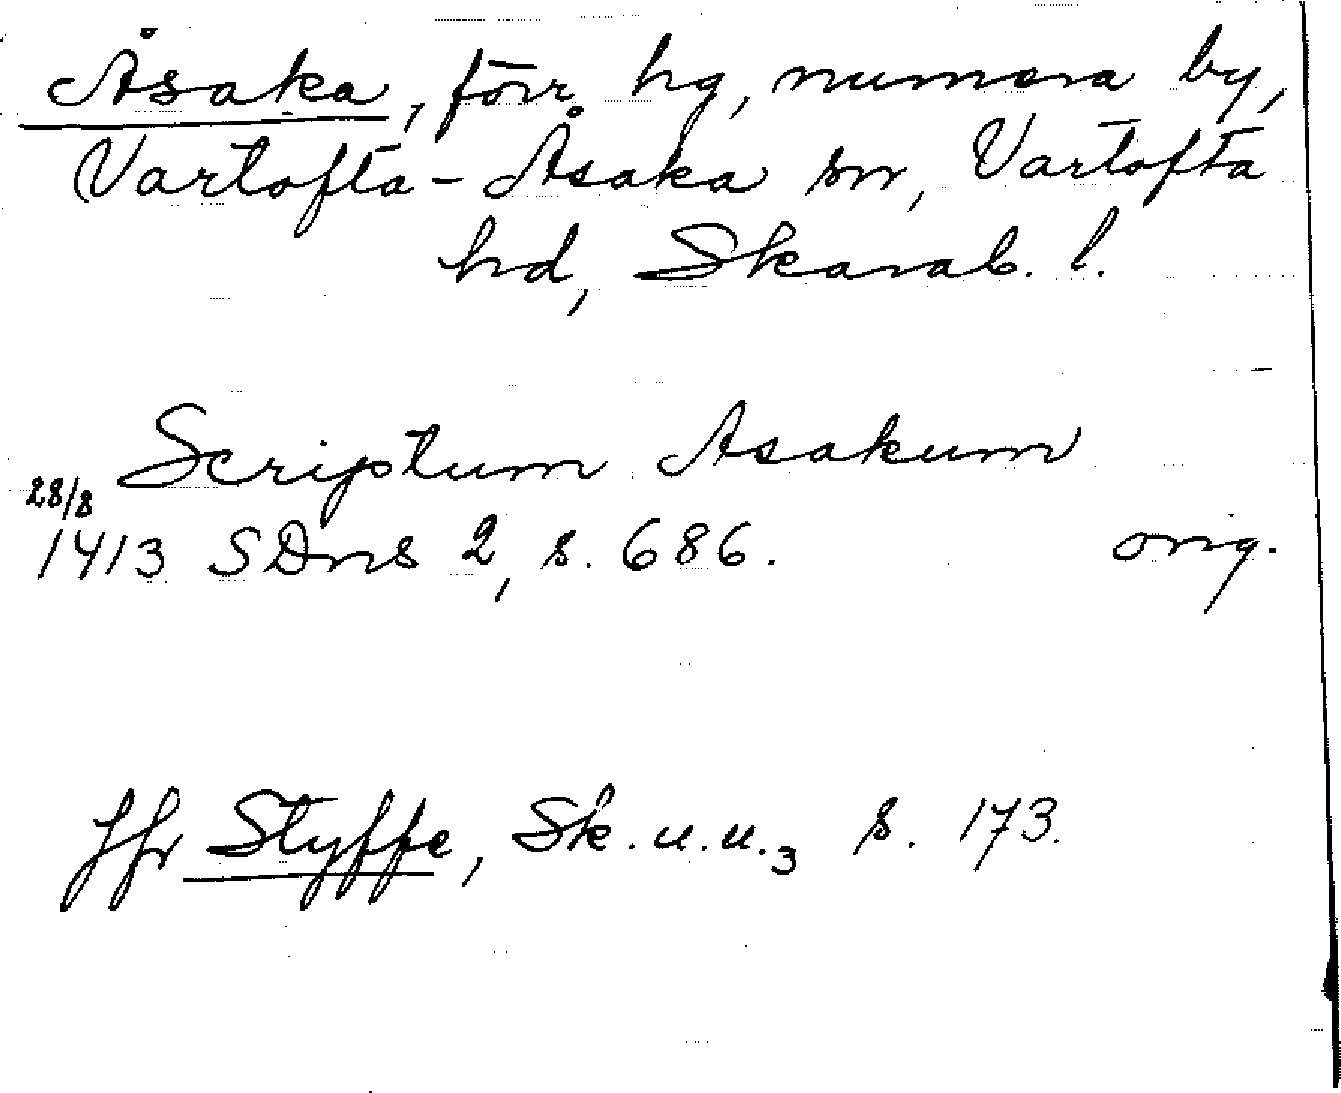 Åsaka, förr hg, numera by,
Vartofta-Åsaka sn, Vartofta
hd, Skarab. l.
Scriptum Asakum
28/8
1413 SDns 2, s. 686. orig.
Jfr Styffe, Sk.u.u.3 s. 173.